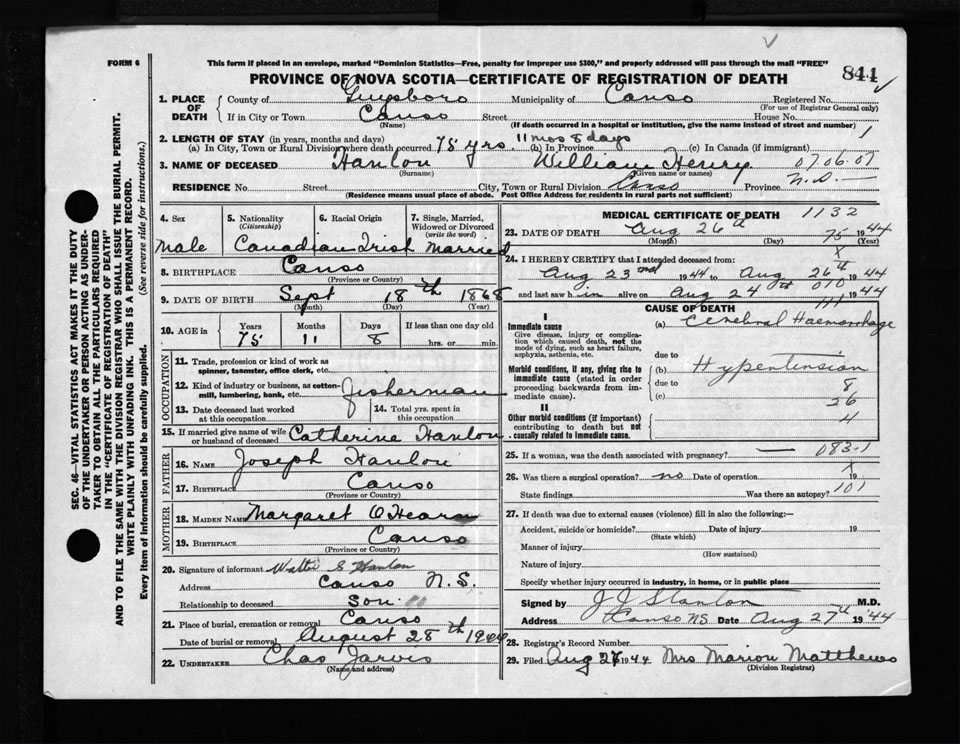 FORM 6
This form if placed in an envelope, marked "Dominion Statistics—Free, penalty for improper use $300," and properly addressed will pass through the mail "FREE"
PROVINCE OF NOVA SCOTIA—CERTIFICATE OF REGISTRATION OF DEATH
841
1. PLACE OF DEATH
County of Guysboro Municipality of Canso Registered No.
(For use of Registrar General only)
If in City or Town Canso Street House No.
(Name) (If death occurred in a hospital or institution, give the name instead of street and number)
2. LENGTH OF STAY (in years, months and days) 11 mos 8 days 1
(a) In City, Town or Rural Division where death occurred 75 yrs. (b) In Province (c) In Canada (if immigrant)
3. NAME OF DECEASED Hanlon William Henry 07.06.07
(Surname) (Given name or names)
RESIDENCE No. Street City, Town or Rural Division Canso Province N.S.
(Residence means usual place of abode. Post Office Address for residents in rural parts not sufficient)
4. Sex
Male
5. Nationality
(Citizenship)
Canadian
6. Racial Origin
Irish
7. Single, Married, Widowed or Divorced
(write the word)
Married
8. BIRTHPLACE Canso
(Province or Country)
9. DATE OF BIRTH Sept 18th 1868
(Month) (Day) (Year)
10. AGE in
Years Months Days If less than one day old
75 11 8 hrs. or min.
OCCUPATION
11. Trade, profession or kind of work as spinner, teamster, office clerk, etc.
12. Kind of industry or business, as cotton-mill, lumbering, bank, etc. Fisherman
13. Date deceased last worked at this occupation
14. Total yrs. spent in this occupation
15. If married give name of wife or husband of deceased Catherine Hanlon
FATHER
16. NAME Joseph Hanlon
17. BIRTHPLACE Canso
(Province or Country)
MOTHER
18. MAIDEN NAME Margaret O'Hearn
19. BIRTHPLACE Canso
(Province or Country)
20. Signature of informant Walter S Hanlon
Address Canso N.S.
Relationship to deceased Son
21. Place of burial, cremation or removal Canso
Date of burial or removal August 28th 1944
22. UNDERTAKER Chas Jarvis
(Name and address)
MEDICAL CERTIFICATE OF DEATH 1132
23. DATE OF DEATH Aug 26th 75 1944
(Month) (Day) (Year)
24. I HEREBY CERTIFY that I attended deceased from: X
Aug 23rd 1944 to Aug 26th 1944
010
and last saw him alive on Aug 24th 1944
111
CAUSE OF DEATH
I
Immediate cause
Give disease, injury or complication which caused death, not the mode of dying, such as heart failure, asphyxia, asthenia, etc.
(a) Cerebral Haemorrhage
due to
Morbid conditions, if any, giving rise to immediate cause (stated in order proceeding backwards from immediate cause).
(b) Hypertension
due to 8
(c) 26
II
Other morbid conditions (if important) contributing to death but not causally related to immediate cause.
4
25. If a woman, was the death associated with pregnancy? — 083.1
26. Was there a surgical operation? no Date of operation X 19
State findings Was there an autopsy? 101
27. If death was due to external causes (violence) fill in also the following:—
Accident, suicide or homicide? Date of injury 19
(State which)
Manner of injury
(How sustained)
Nature of injury
Specify whether injury occurred in industry, in home, or in public place
Signed by J J Stanton M.D.
Address Canso NS. Date Aug 27th 1944
28. Registrar's Record Number
29. Filed Aug 27 1944 Mrs Marion Matthews
(Division Registrar)
SEC. 46—VITAL STATISTICS ACT MAKES IT THE DUTY
OF THE UNDERTAKER OR PERSON ACTING AS UNDER-
TAKER TO OBTAIN ALL THE PARTICULARS REQUIRED
IN THE "CERTIFICATE OF REGISTRATION OF DEATH"
AND TO FILE THE SAME WITH THE DIVISION REGISTRAR WHO SHALL ISSUE THE BURIAL PERMIT.
WRITE PLAINLY WITH UNFADING INK. THIS IS A PERMANENT RECORD.
Every item of information should be carefully supplied. (See reverse side for instructions.)